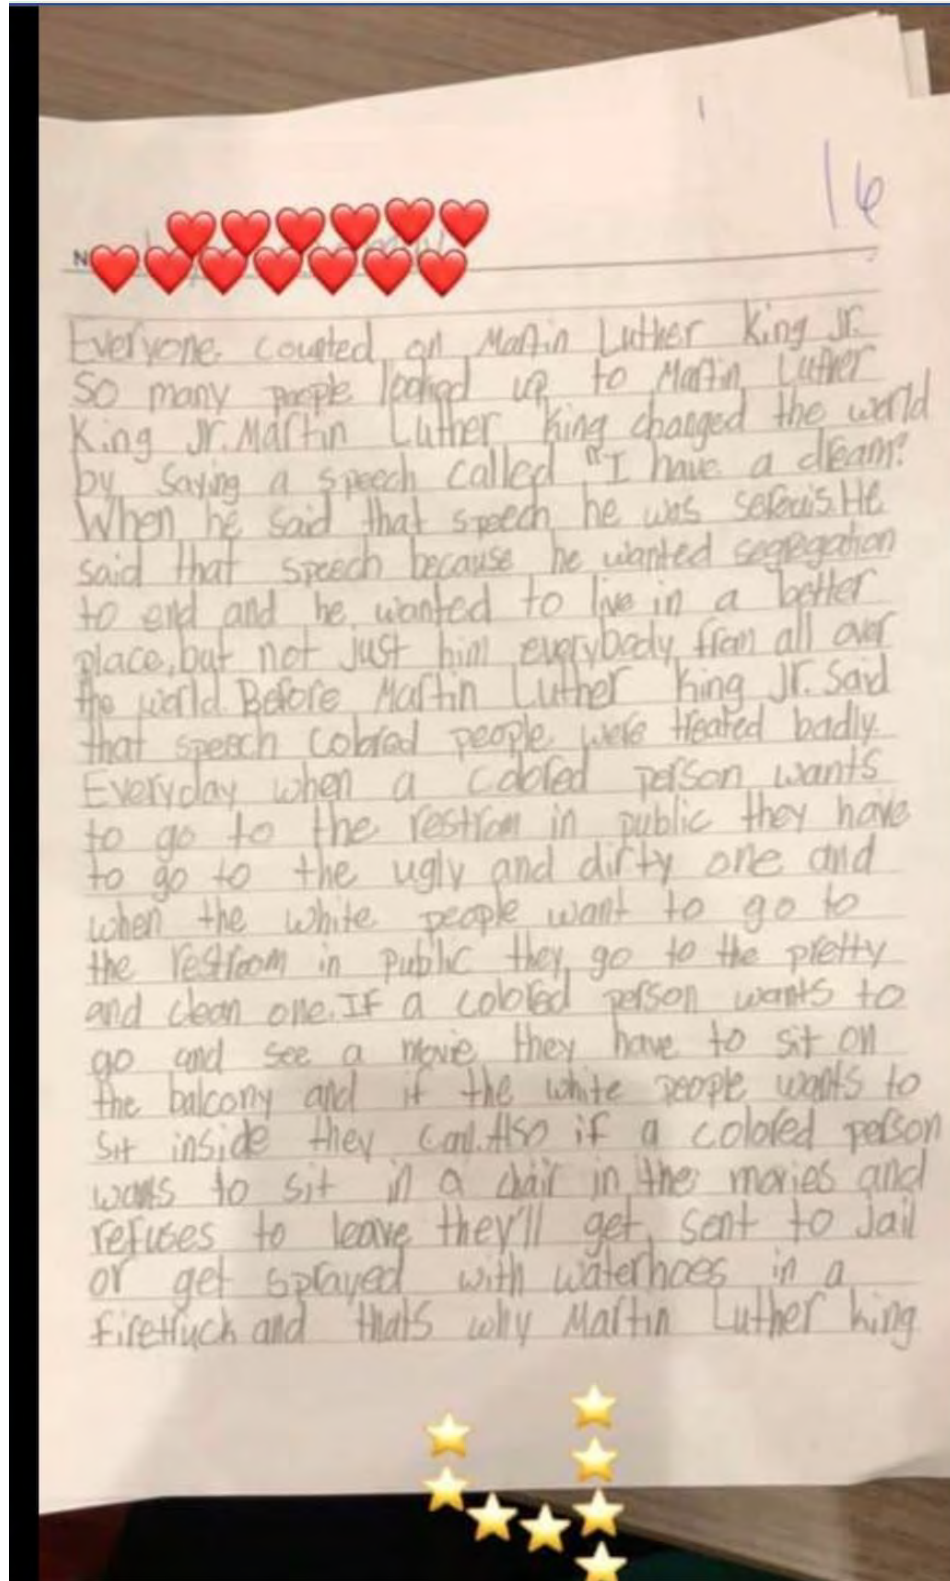 16
N
Everyone counted on Martin Luther King Jr.
So many people looked up to Martin Luther
King Jr. Martin Luther King changed the world
by saying a speech called "I have a dream."
When he said that speech he was serouis. He
said that speech because he wanted segregation
to end and he wanted to live in a better
place, but not just him everybody from all over
the world. Before Martin Luther King Jr. Said
that speech colored people were treated badly.
Everyday when a colored person wants
to go to the restroom in public they have
to go to the ugly and dirty one and
when the white people want to go to
the restroom in public they go to the pretty
and clean one. If a colored person wants to
go and see a movie they have to sit on
the balcony and if the white people wants to
sit inside they can. Also if a colored person
wants to sit in a chair in the movies and
refuses to leave they'll get sent to jail
or get sprayed with waterhoes in a
firetruck and thats why Martin Luther king